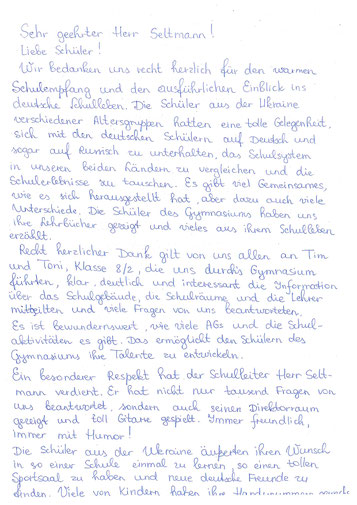 Sehr geehrter Herr Seltmann!
Liebe Schüler!
Wir bedanken uns recht herzlich für den warmen
Schulempfang und den ausführlichen Einblick ins
deutsche Schulleben. Die Schüler aus der Ukraine
verschiedener Altersgruppen hatten eine tolle Gelegenheit,
sich mit den deutschen Schülern auf Deutsch und
sogar auf Russisch zu unterhalten, das Schulsystem
in unseren beiden Ländern zu vergleichen und die
Schulerlebnisse zu tauschen. Es gibt viel Gemeinsames,
wie es sich herausgestellt hat, aber dazu auch viele
Unterschiede. Die Schüler des Gymnasiums haben uns
ihre Lehrbücher gezeigt und vieles aus ihrem Schulleben
erzählt.
Recht herzlicher Dank gilt von uns allen an Tim
und Toni, Klasse 8/2, die uns durch's Gymnasium
führten, klar, deutlich und interessant die Information
über das Schulgebäude, die Schulräume und die Lehrer
mitteilten und viele Fragen von uns beantworteten.
Es ist bewundernswert, wie viele AGs und die Schul-
aktivitäten es gibt. Das ermöglicht den Schülern des
Gymnasiums ihre Talente zu entwickeln.
Ein besonderer Respekt hat der Schulleiter Herr Selt-
mann verdient. Er hat nicht nur tausend Fragen von
uns beantwortet, sondern auch seinen Direktorraum
gezeigt und toll Gitarre gespielt. Immer freundlich,
immer mit Humor!
Die Schüler aus der Ukraine äußerten ihren Wunsch
in so einer Schule einmal zu lernen, so einen tollen
Sportsaal zu haben und neue deutsche Freunde zu
finden. Viele von Kindern haben ihre Handynummern